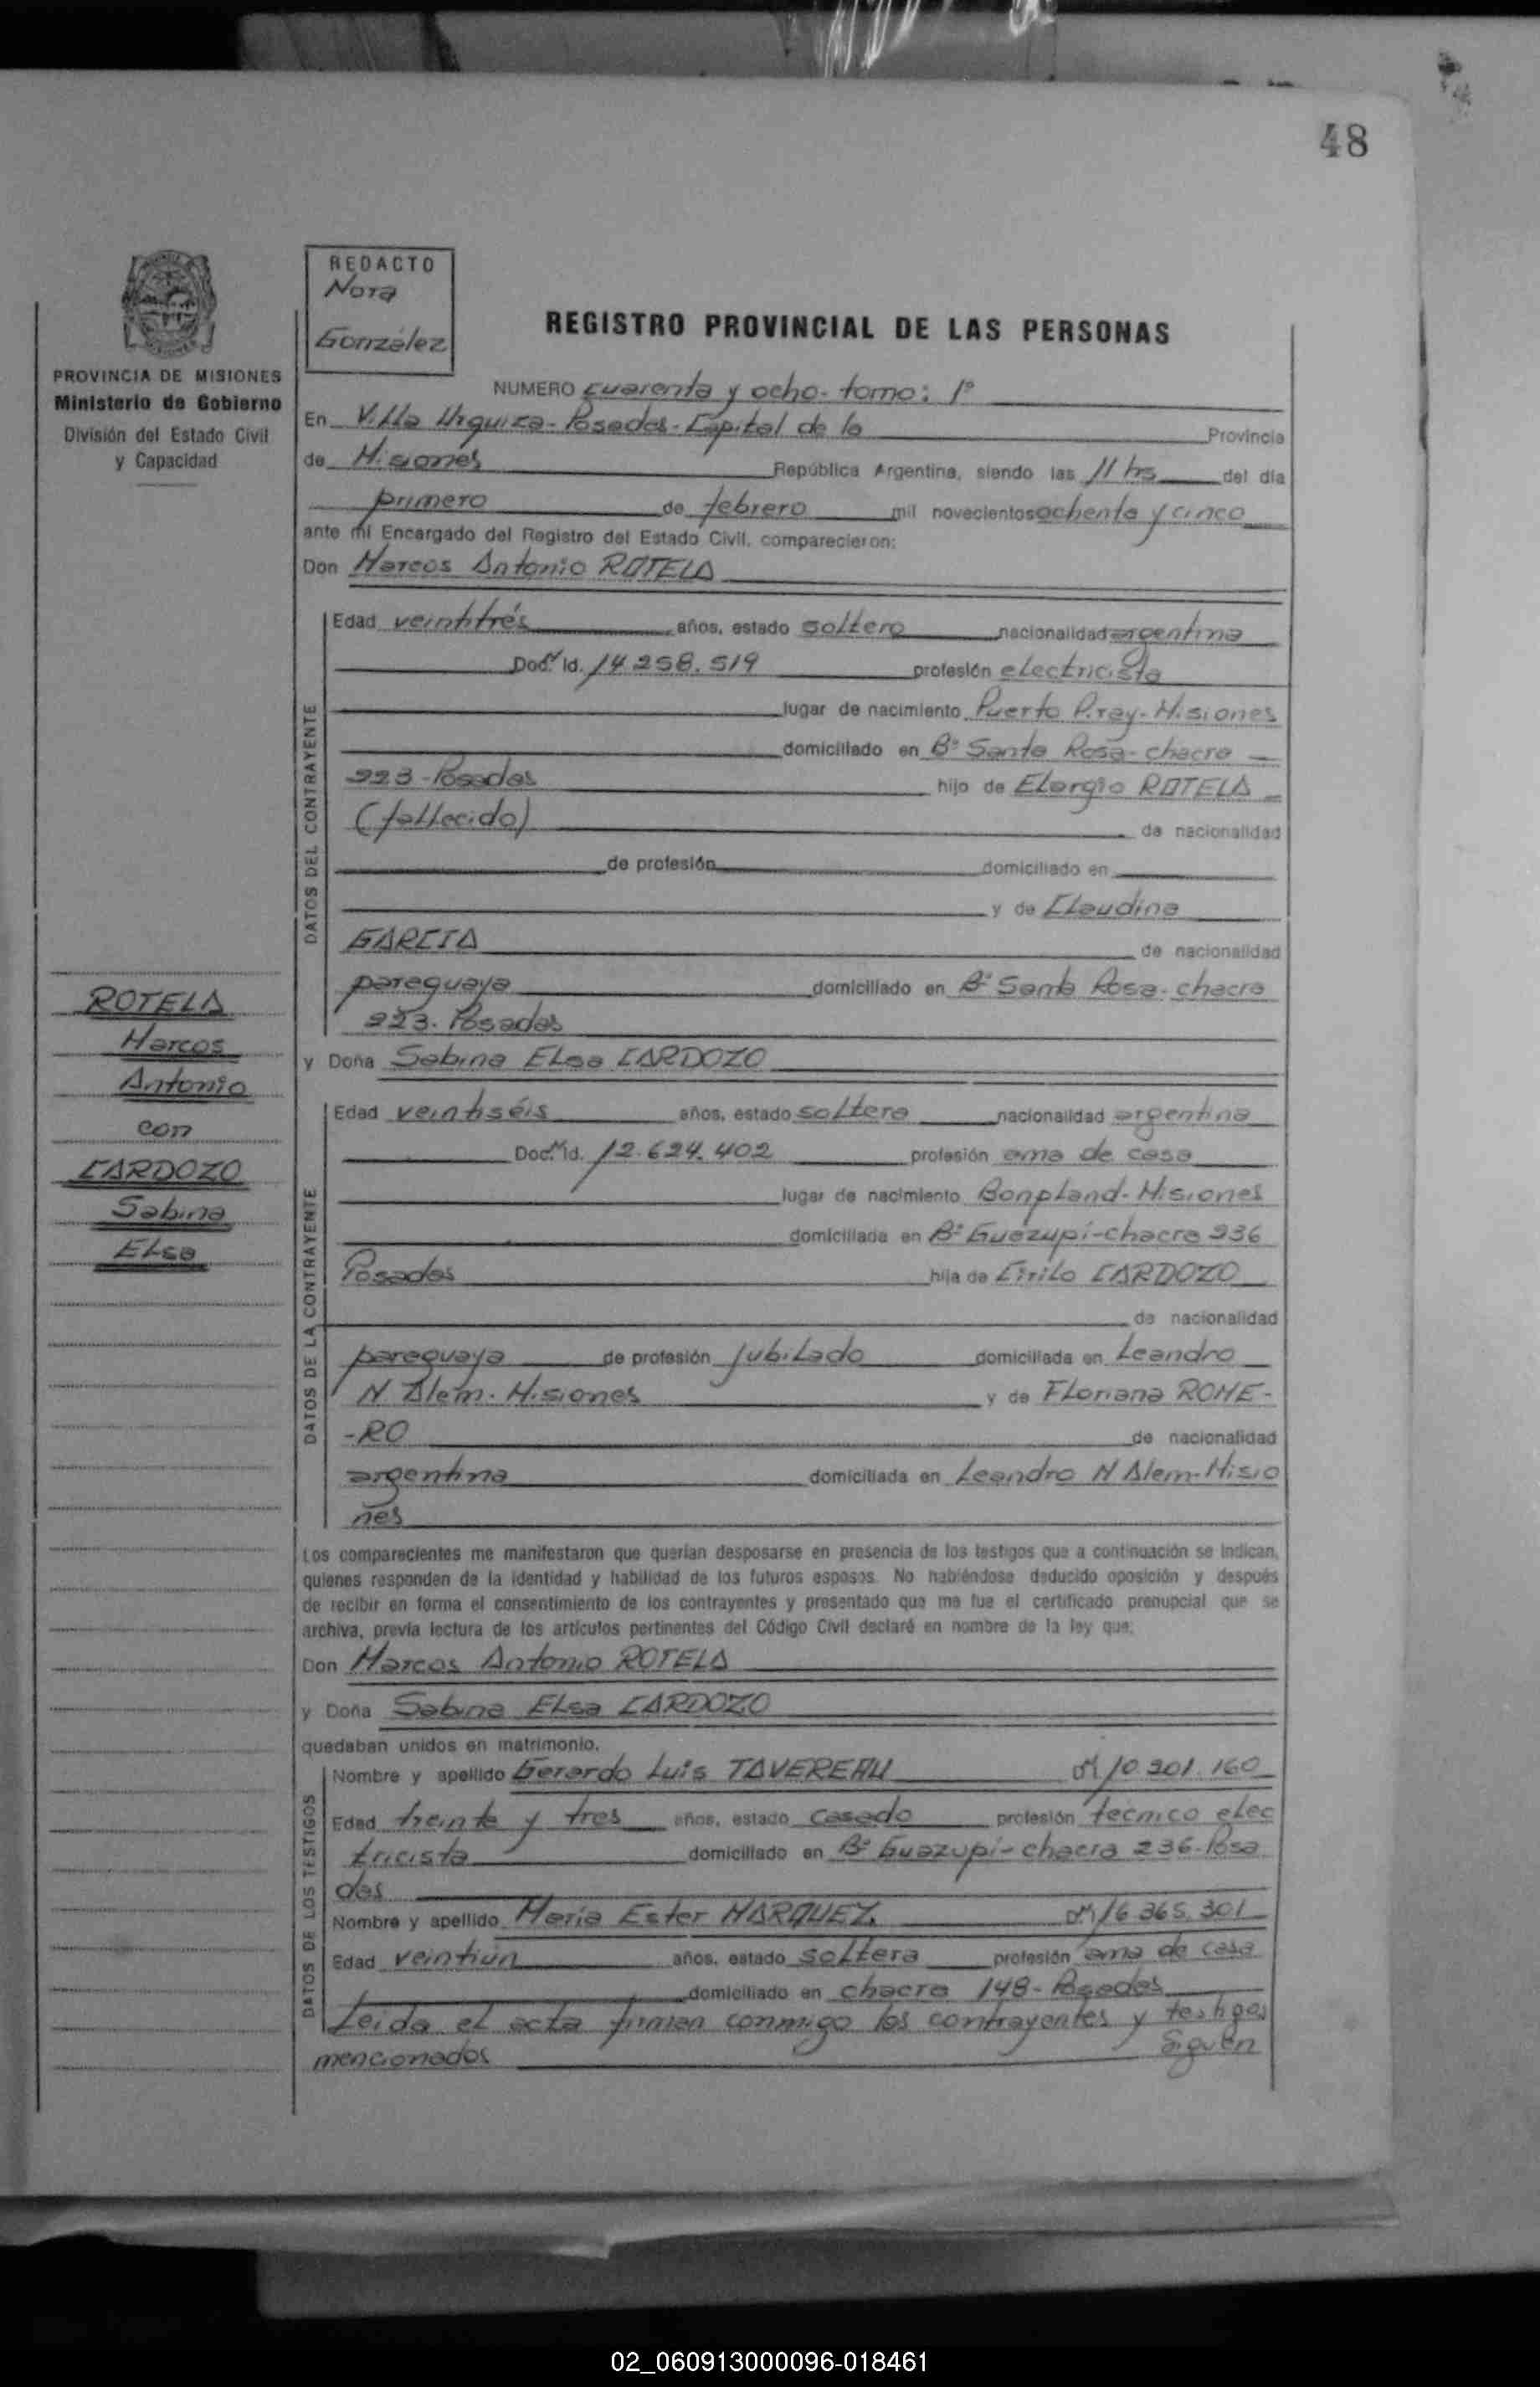 48
REDACTO
Nora
González
REGISTRO PROVINCIAL DE LAS PERSONAS
PROVINCIA DE MISIONES
Ministerio de Gobierno
División del Estado Civil
y Capacidad
NUMERO cuarenta y ocho - tomo: 1º
En Villa Urquiza - Posadas - Capital de la Provincia
de Misiones República Argentina, siendo las 11 hs del día
primero de febrero mil novecientos ochenta y cinco
ante mí Encargado del Registro del Estado Civil, comparecieron:
Don Marcos Antonio ROTELA
DATOS DEL CONTRAYENTE
Edad veintitrés años, estado soltero nacionalidad argentina
Doc. Id. 14.258.519 profesión electricista
lugar de nacimiento Puerto Piray - Misiones
domiciliado en Bº Santa Rosa - chacra
223 - Posadas hijo de Elergio ROTELA
(fallecido) de nacionalidad
de profesión domiciliado en
y de Claudina
GARCIA de nacionalidad
paraguaya domiciliado en Bº Santa Rosa - chacra
223 - Posadas
y Doña Sabina Elsa CARDOZO
ROTELA
Marcos
Antonio
con
CARDOZO
Sabina
Elsa
DATOS DE LA CONTRAYENTE
Edad veintiséis años, estado soltera nacionalidad argentina
Doc. Id. 12.624.402 profesión ama de casa
lugar de nacimiento Bonpland - Misiones
domiciliada en Bº Guazupí - chacra 236
Posadas hija de Cirilo CARDOZO
de nacionalidad
paraguaya de profesión jubilado domiciliada en Leandro
N Alem - Misiones y de Floriana ROME-
-RO de nacionalidad
argentina domiciliada en Leandro N Alem - Misio
nes
Los comparecientes me manifestaron que querían desposarse en presencia de los testigos que a continuación se indican,
quienes responden de la identidad y habilidad de los futuros esposos. No habiéndose deducido oposición y después
de recibir en forma el consentimiento de los contrayentes y presentado que me fue el certificado prenupcial que se
archiva, previa lectura de los artículos pertinentes del Código Civil declaré en nombre de la ley que:
Don Marcos Antonio ROTELA
y Doña Sabina Elsa CARDOZO
quedaban unidos en matrimonio.
DATOS DE LOS TESTIGOS
Nombre y apellido Gerardo Luis TAVEREAU 10.201.160
Edad treinta y tres años, estado casado profesión técnico elec
tricista domiciliado en Bº Guazupí - chacra 236 - Posa
das
Nombre y apellido María Ester MARQUEZ 16.365.301
Edad veintiún años, estado soltera profesión ama de casa
domiciliado en chacra 148 - Posadas
Leida el acta firman conmigo los contrayentes y testigos
mencionados Siguen
02_060913000096-018461